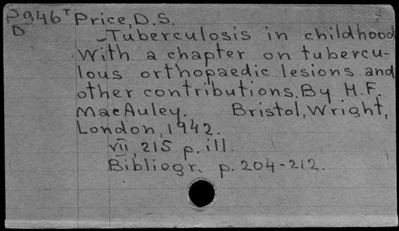 P946T Price, D.S.
D
Tuberculosis in childhood
With a chapter on tubercu-
lous orthopaedic lesions and
other contributions. By H.F.
MacAuley. Bristol, Wright,
London, 1942.
VII, 215 p. ill.
Bibliogr. p. 204-212.